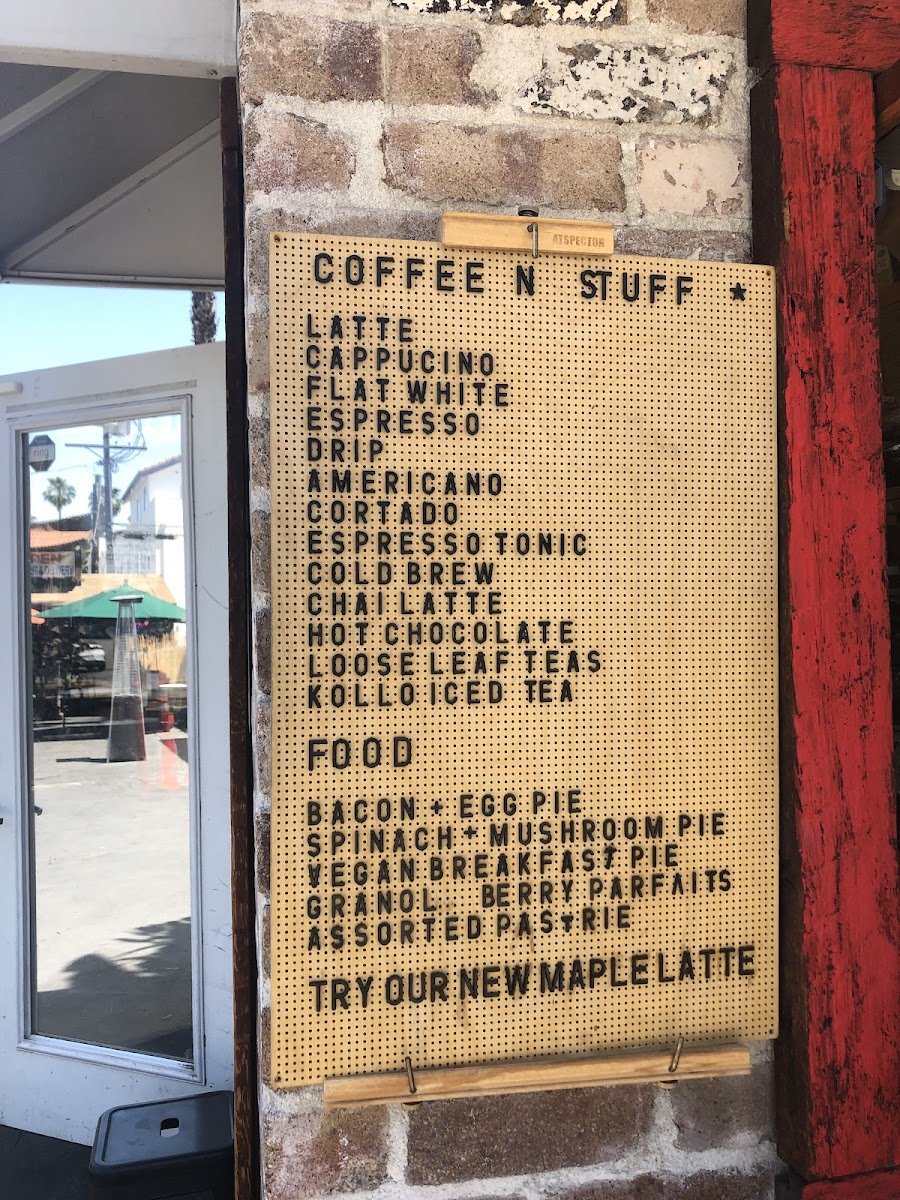 ATSPECTOR
COFFEE N STUFF ★
LATTE
CAPPUCINO
FLAT WHITE
ESPRESSO
DRIP
AMERICANO
CORTADO
ESPRESSO TONIC
COLD BREW
CHAI LATTE
HOT CHOCOLATE
LOOSE LEAF TEAS
KOLLO ICED TEA
FOOD
BACON + EGG PIE
SPINACH + MUSHROOM PIE
VEGAN BREAKFAST PIE
GRANOL BERRY PARFAITS
ASSORTED PASTRIE
TRY OUR NEW MAPLE LATTE
ring